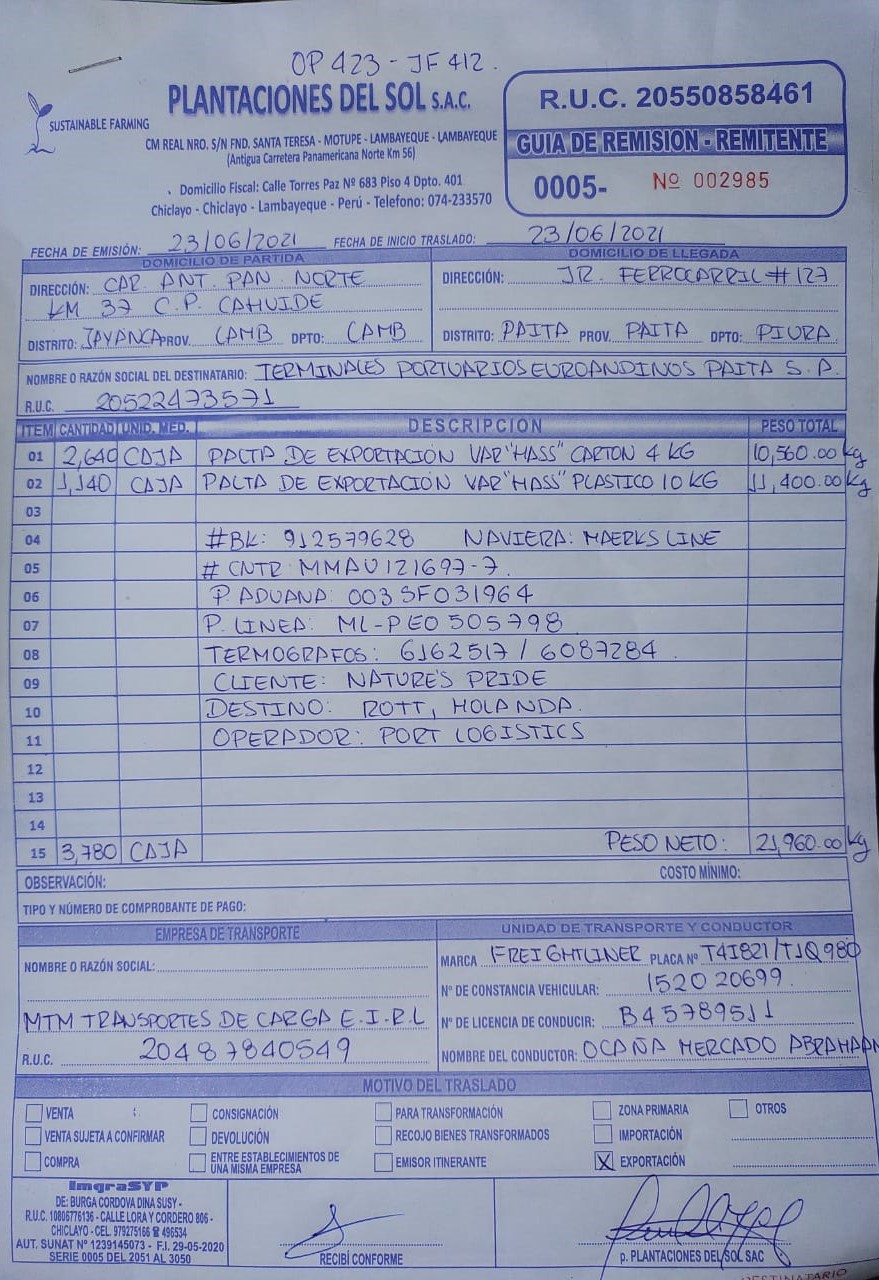 OP 423 - JF 412.
SUSTAINABLE FARMING
PLANTACIONES DEL SOL S.A.C.
CM REAL NRO. S/N FND. SANTA TERESA - MOTUPE - LAMBAYEQUE - LAMBAYEQUE
(Antigua Carretera Panamericana Norte Km 56)
Domicilio Fiscal: Calle Torres Paz Nº 683 Piso 4 Dpto. 401
Chiclayo - Chiclayo - Lambayeque - Perú - Telefono: 074-233570
R.U.C. 20550858461
GUIA DE REMISION - REMITENTE
0005- Nº 002985
FECHA DE EMISIÓN: 23/06/2021 FECHA DE INICIO TRASLADO: 23/06/2021
DOMICILIO DE PARTIDA
DIRECCIÓN: CAR. ANT. PAN. NORTE
KM 37 C.P. CAHUIDE
DISTRITO: JAYANCA PROV. LAMB DPTO: LAMB
DOMICILIO DE LLEGADA
DIRECCIÓN: JR. FERROCARRIL # 127
DISTRITO: PAITA PROV. PAITA DPTO: PIURA
NOMBRE O RAZÓN SOCIAL DEL DESTINATARIO: TERMINALES PORTUARIOS EUROANDINOS PAITA S.A.
R.U.C. 20522473571
ITEM CANTIDAD UNID. MED. DESCRIPCION PESO TOTAL
01 2,640 CAJA PALTA DE EXPORTACIÓN VAR "HASS" CARTON 4 KG 10,560.00 Kg
02 1,140 CAJA PALTA DE EXPORTACIÓN VAR "HASS" PLASTICO 10 KG 11,400.00 Kg
03
04 #BK: 912579628 NAVIERA: MAERKS LINE
05 # CNTR: MMAU121697-7.
06 P. ADUANA: 003SF031964
07 P. LINEA: ML-PE0505798
08 TERMOGRAFOS: 6162517 / 6087284.
09 CLIENTE: NATURE'S PRIDE
10 DESTINO: ROTT, HOLANDA.
11 OPERADOR: PORT LOGISTICS
12
13
14
15 3,780 CAJA PESO NETO: 21,960.00 Kg
OBSERVACIÓN: COSTO MÍNIMO:
TIPO Y NÚMERO DE COMPROBANTE DE PAGO:
EMPRESA DE TRANSPORTE
NOMBRE O RAZÓN SOCIAL:
MTM TRANSPORTES DE CARGA E.I.R.L
R.U.C. 20487840549
UNIDAD DE TRANSPORTE Y CONDUCTOR
MARCA FREIGHTLINER PLACA Nº T4I821/TJQ980
Nº DE CONSTANCIA VEHICULAR: 152020699.
Nº DE LICENCIA DE CONDUCIR: B45789511
NOMBRE DEL CONDUCTOR: OCAÑA MERCADO ABRAHAAN
MOTIVO DEL TRASLADO
VENTA CONSIGNACIÓN PARA TRANSFORMACIÓN ZONA PRIMARIA OTROS
VENTA SUJETA A CONFIRMAR DEVOLUCIÓN RECOJO BIENES TRANSFORMADOS IMPORTACIÓN
COMPRA ENTRE ESTABLECIMIENTOS DE UNA MISMA EMPRESA EMISOR ITINERANTE X EXPORTACIÓN
ImgraSYP
DE: BURGA CORDOVA DINA SUSY -
R.U.C. 10806776136 - CALLE LORA Y CORDERO 806 -
CHICLAYO - CEL. 979275166 ☎ 496534
AUT. SUNAT Nº 1239145073 - F.I. 29-05-2020
SERIE 0005 DEL 2051 AL 3050
RECIBÍ CONFORME
p. PLANTACIONES DEL SOL SAC
DESTINATARIO